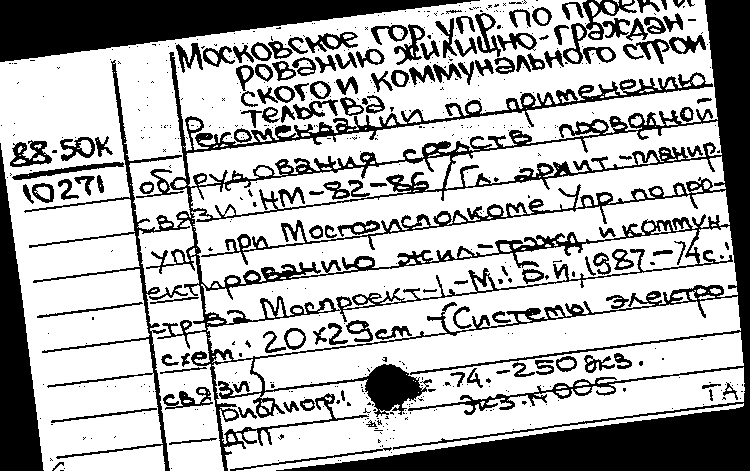 Московское гор. упр. по проекти
рованию жилищно-граждан-
ского и коммунального строи
тельства.
Рекомендации по применению
88-50К
оборудования средств проводной
10271
связи: НМ-82-86 / Гл. архит.-планир.
упр. при Мосгорисполкоме. Упр. по про-
ектированию жил.-гражд. и коммун.
стр-ва Моспроект-1.-М.: Б.и., 1987.-74с.:
схем.; 20х29см. -(Системы электро-
связи).
Библиогр.: .74. -250 экз.
Экз. N 005.
ДСП.
ТА